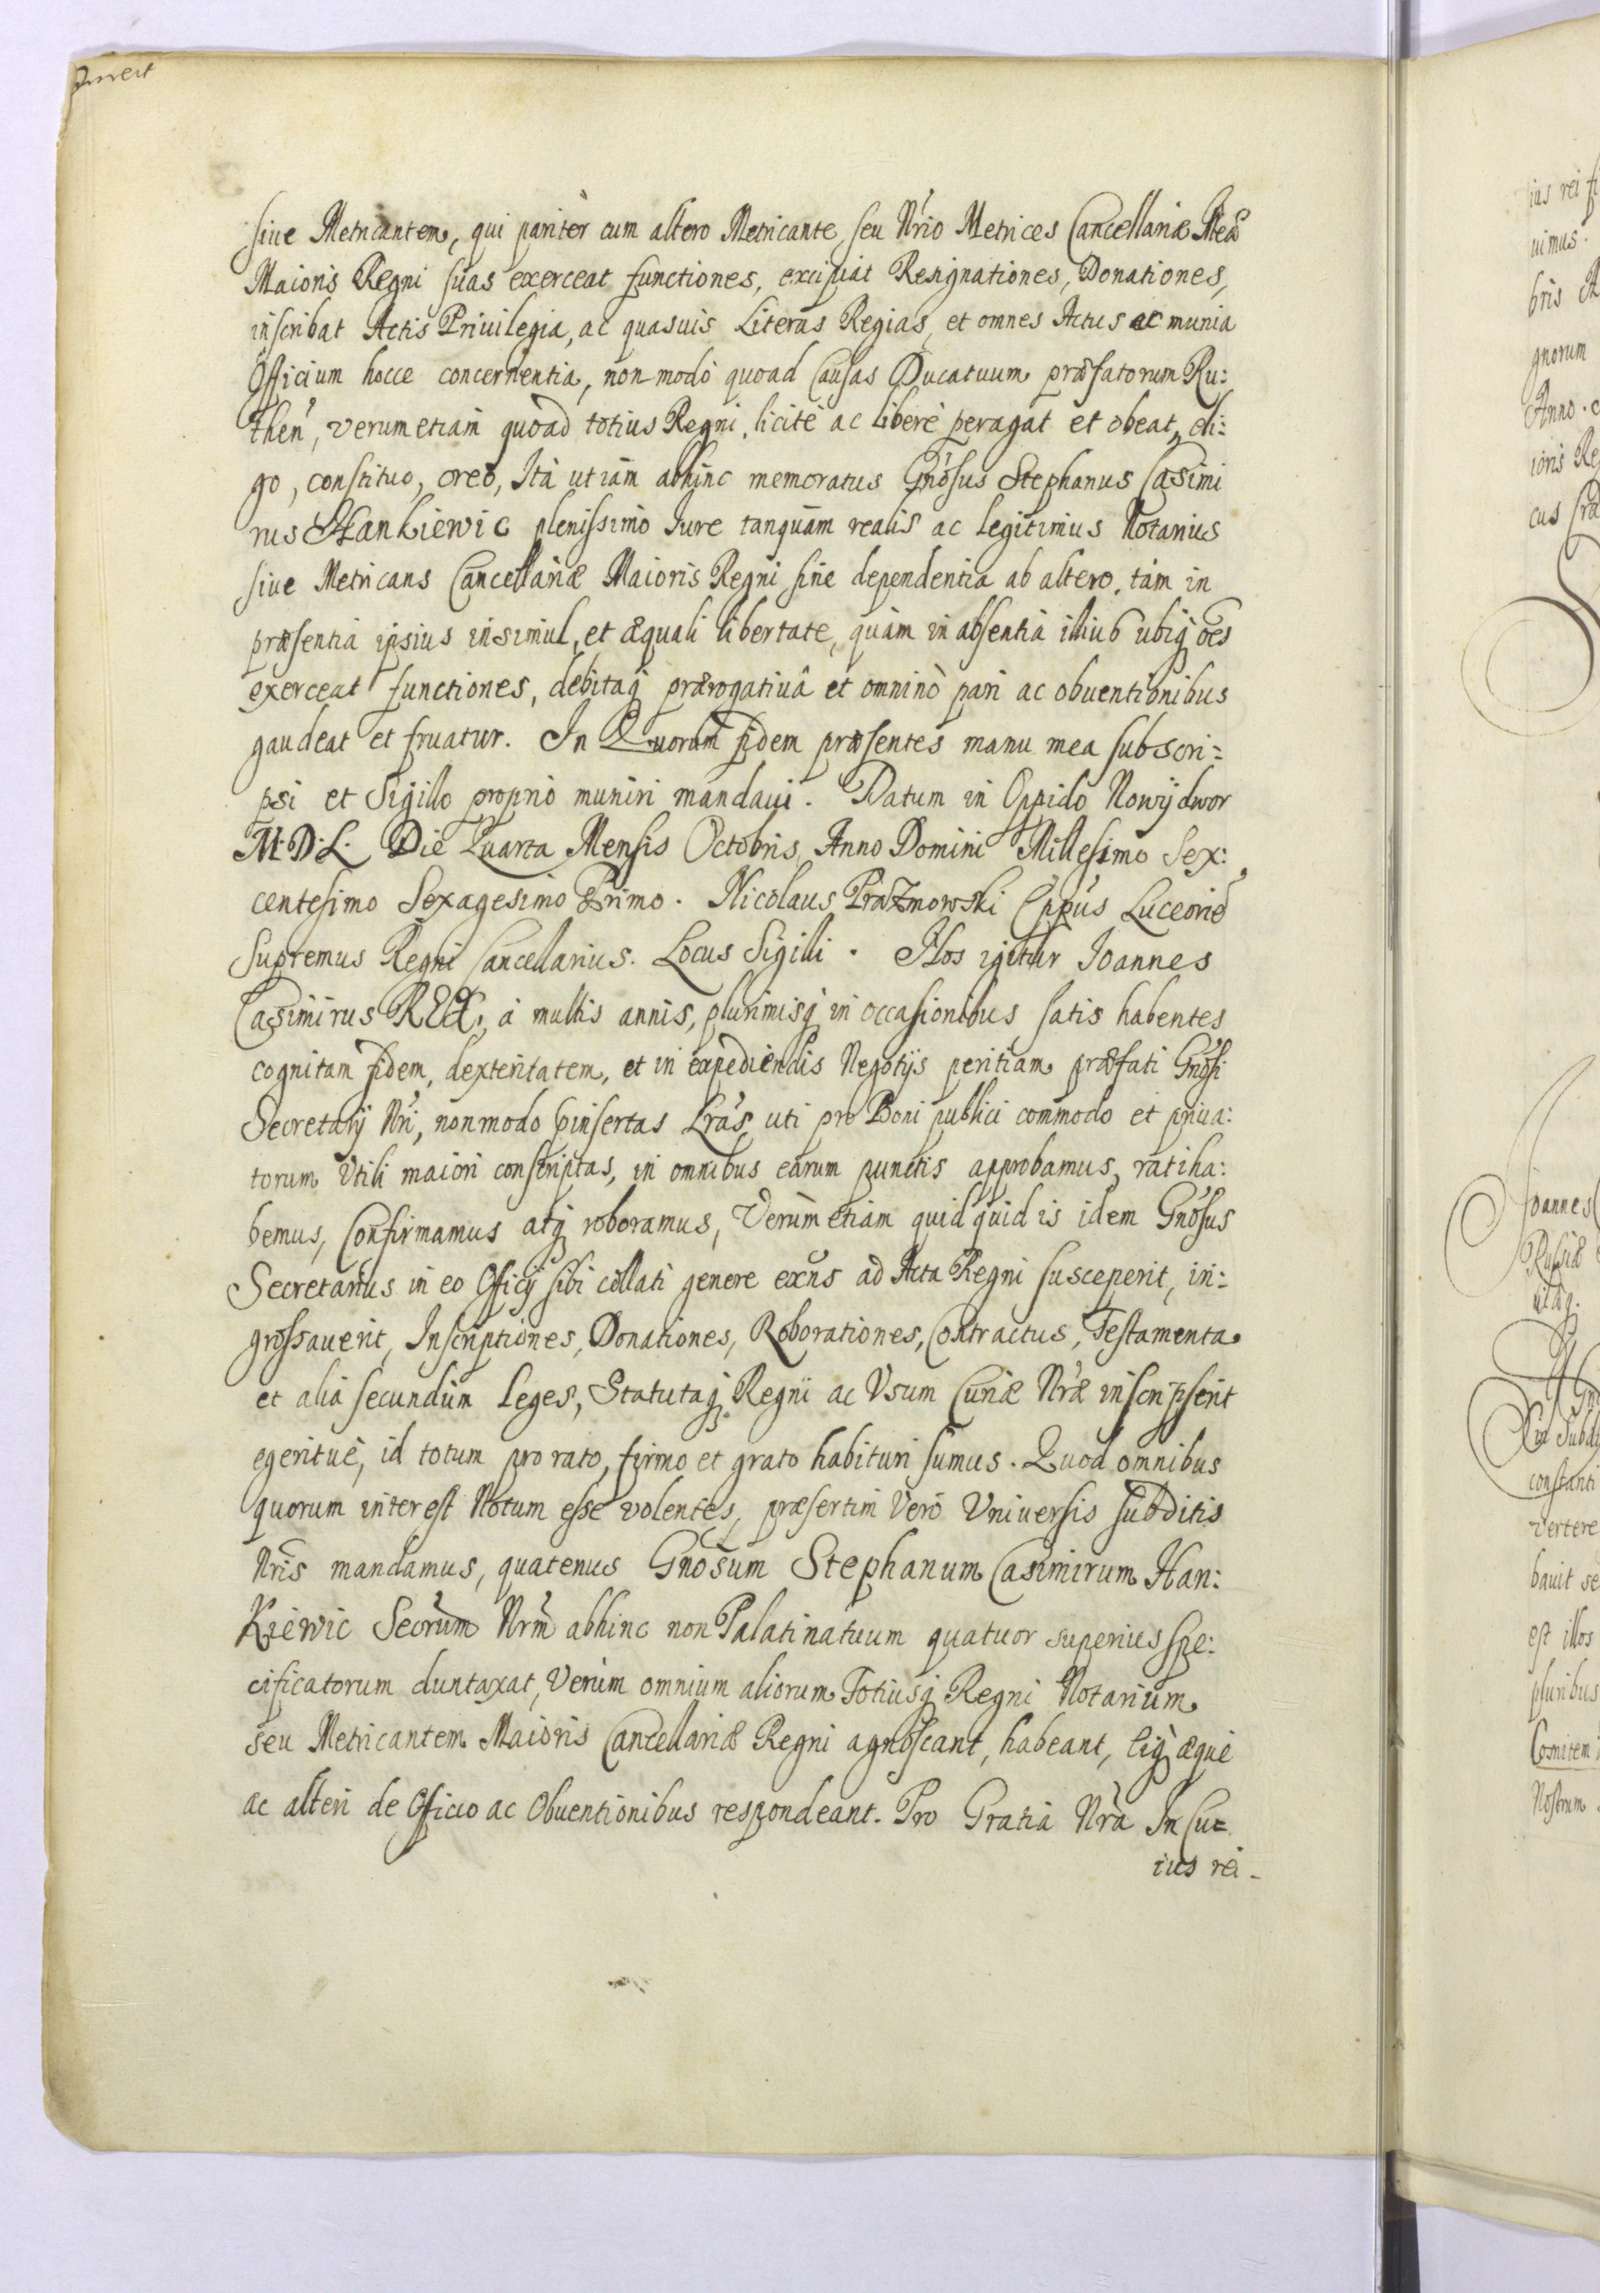 Invert
siue Metricantem, qui paritèr cum altero Metricante, seu Nrio Metrices Cancellariæ Meæ
Maioris Regni suas exerceat functiones, excipiat Resignationes, Donationes,
inscribat Actis Priuilegia, ac quasuis Literas Regias, et omnes Actus ac munia
Officium hocce concernentia, non modò quoad Causas Ducatuum præfatorum Ru:
then, verum etiam quoad totius Regni, licitè ac liberè peragat et obeat, eli:
go, constituo, creo, Ità ut iam abhinc memoratus Gnosus Stephanus Casimi
rus Hankiewic plenissimo Iure tanquam realis ac legitimus Notarius
siue Metricans Cancellariæ Maioris Regni sine dependentia ab altero, tàm in
præsentia ipsius insimul, et æquali libertate, quàm in absentia illius ubiq oes
exerceat functiones, debitaq prærogatiuâ et omninò pari ac obuentionibus
gaudeat et fruatur. In Quorum fidem præsentes manu mea subscri:
psi et Sigillo proprio muniri mandaui. Datum in Oppido Nowydwor
M:D:L. Die Quarta Mensis Octobris, Anno Domini Millesimo Sex:
centesimo Sexagesimo Primo. Nicolaus Prazmowski Eppus Luceorien
Supremus Regni Cancellarius. Locus Sigilli. Nos igitur Ioannes
Casimirus REX, à multis annis, plurimisq in occasionibus satis habentes
cognitam fidem, dexteritatem, et in expediendis Negotijs peritiam præfati Gnosi
Secretarij Nri, non modo pinsertas Lras, uti pro Boni publici commodo et priua:
torum Vtili maiori conscriptas, in omnibus earum punctis approbamus, ratiha:
bemus, Confirmamus atq roboramus, Verùm etiam quidquid is idem Gnosus
Secretarius in eo Officij sibi collati genere exns ad Acta Regni susceperit, in:
grossauerit, Inscriptiones, Donationes, Roborationes, Contractus, Testamenta
et alia secundùm Leges, Statutaq Regni ac Vsum Curiæ Nræ inscripserit
egeritue, id totum pro rato, firmo et grato habituri sumus. Quod omnibus
quorum interest Notum esse volentes, præsertim Verò Vniuersis subditis
Nris mandamus, quatenus Gnosum Stephanum Casimirum Han:
Kiewic Secrum Nrm abhinc non Palatinatuum quatuor superius spe:
cificatorum duntaxat, Verùm omnium aliorum Totiusq Regni Notarium
seu Metricantem Maioris Cancellariæ Regni agnoscant, habeant, eiq æquè
ac alteri de Officio ac Obuentionibus respondeant. Pro Gratia Nra In Cu=
ius rei
ius rei
uimus.
bris
gnorum
Anno.
ioris Re
cus Cra
Ioannes
Russiæ
uiaq.
Subdi
constanti
vertere
bauit se
est illos
pluribus
Comitem
Nostrum